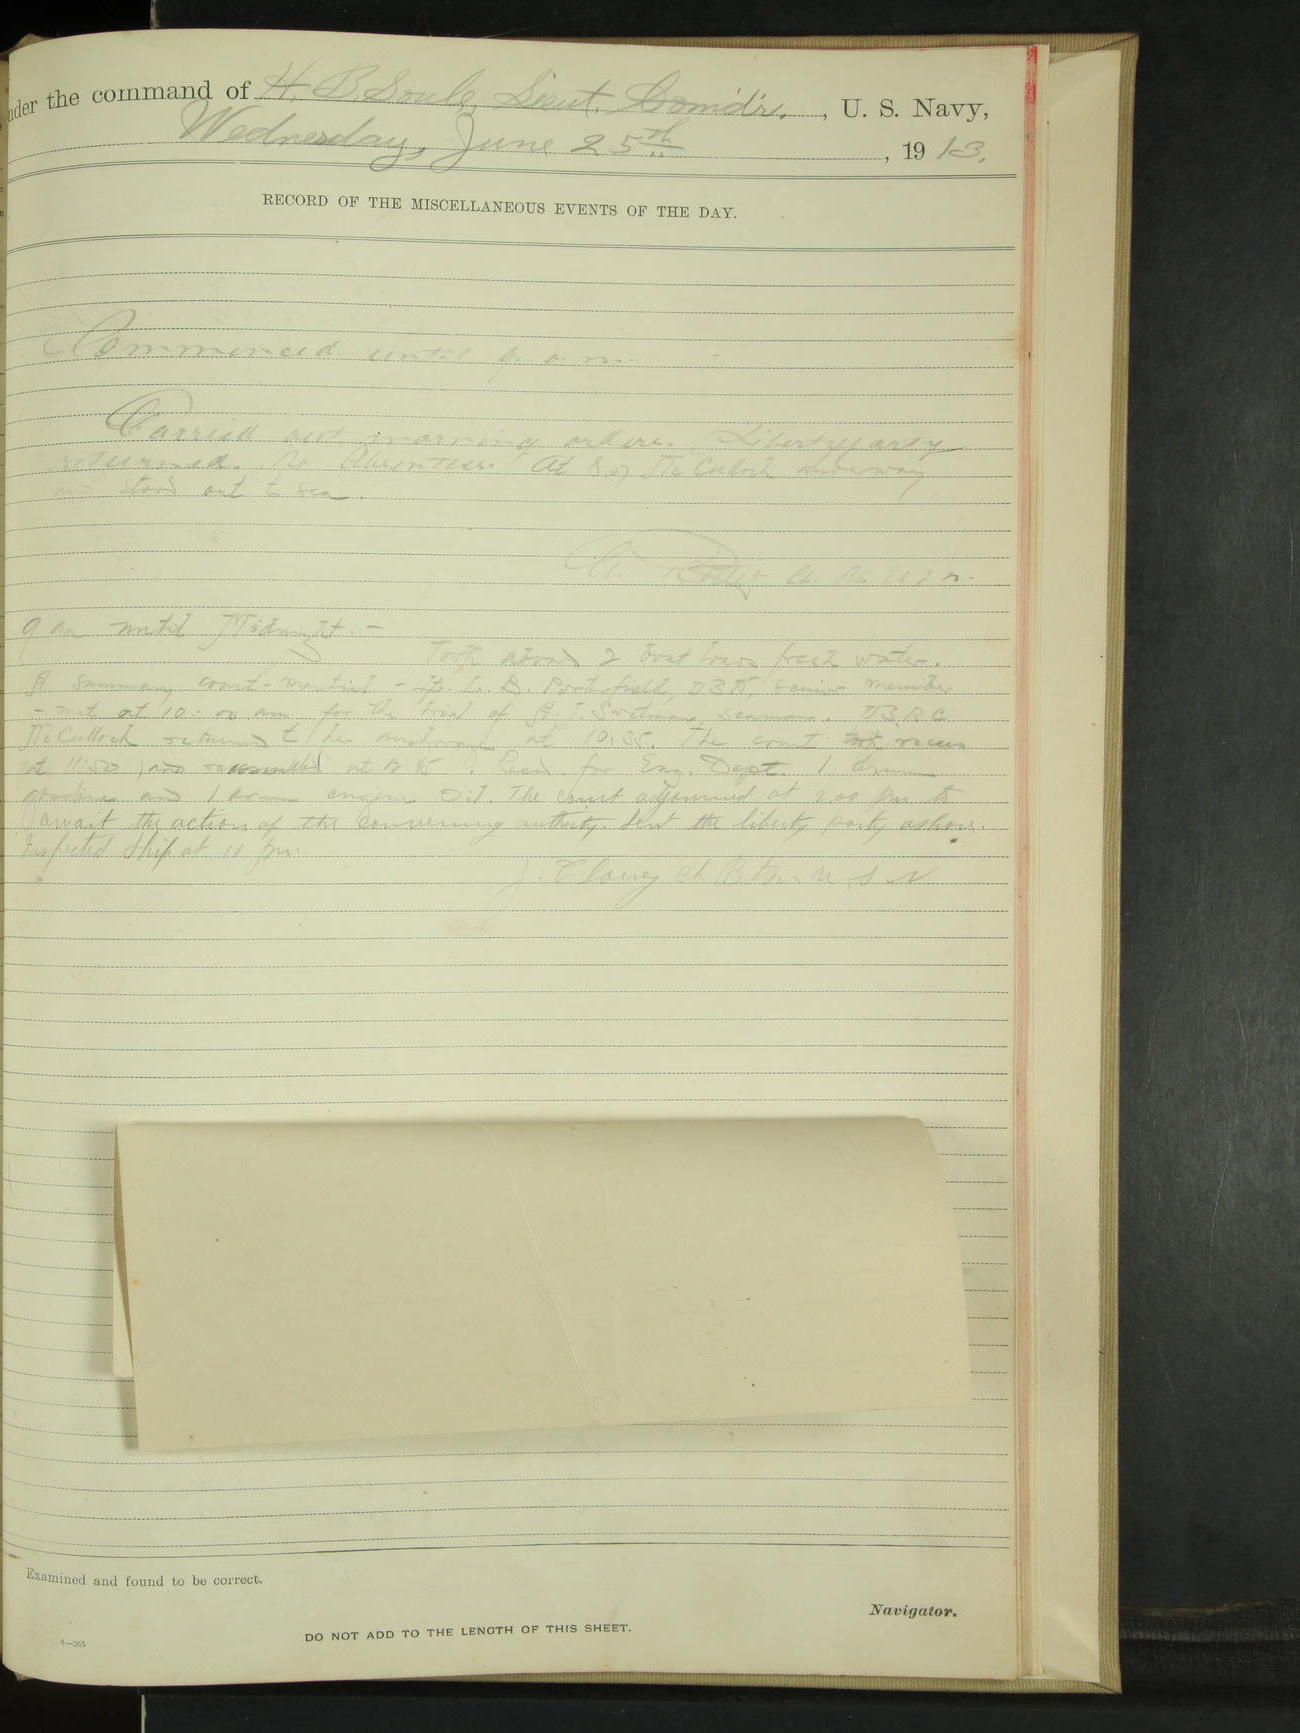 nder the command of H. B. Soule, Lieut. Comd'r., U. S. Navy,
Wednesday, June 25th, 1913.
RECORD OF THE MISCELLANEOUS EVENTS OF THE DAY.
Commenced until 9 a.m.
Carried out morning orders. Liberty party
returned. No Absentees. At 8.07 McCulloch underway
and stood out to sea.
9 am until Midnight.-
Took aboard 2 boat loads fresh water.
A summary court-martial - Lt. L. B. Porterfield, USN, senior member
- met at 10:00 am for the trial of A. T. seaman. USRC
McCulloch returned to her anchorage at 10:35. The court took recess
at 11:50, and reassembled at Recd. for Eng. Dept. 1 drum
gasoline and 1 drum engine oil. The court adjourned at 2.00 pm to
await the action of the convening authority. Sent the liberty party ashore.
Inspected ship at 11 pm.
J. Clancy Ch Btsn U S N
Examined and found to be correct.
Navigator.
4—265
DO NOT ADD TO THE LENGTH OF THIS SHEET.